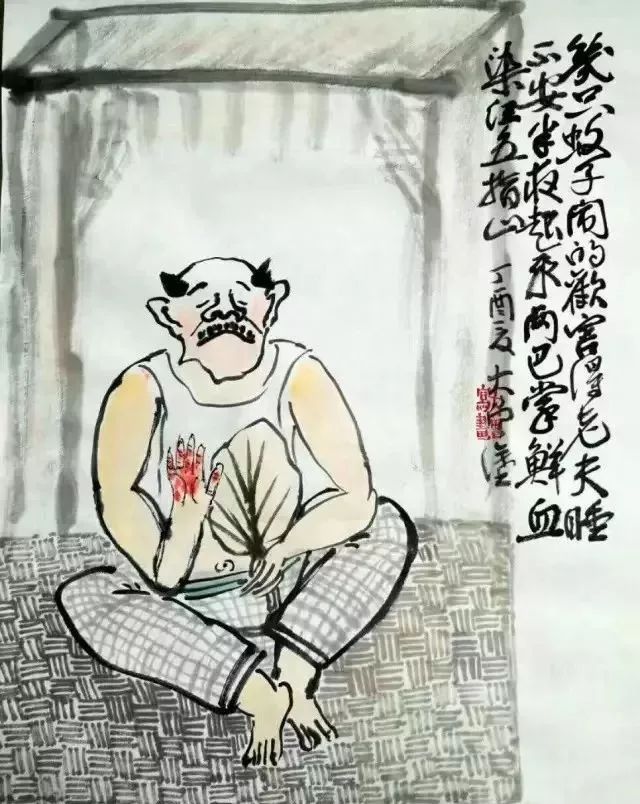 幾只蚊子闹的歡害得老夫睡
不安半夜起来两巴掌鲜血
染江五指山 丁酉夏大